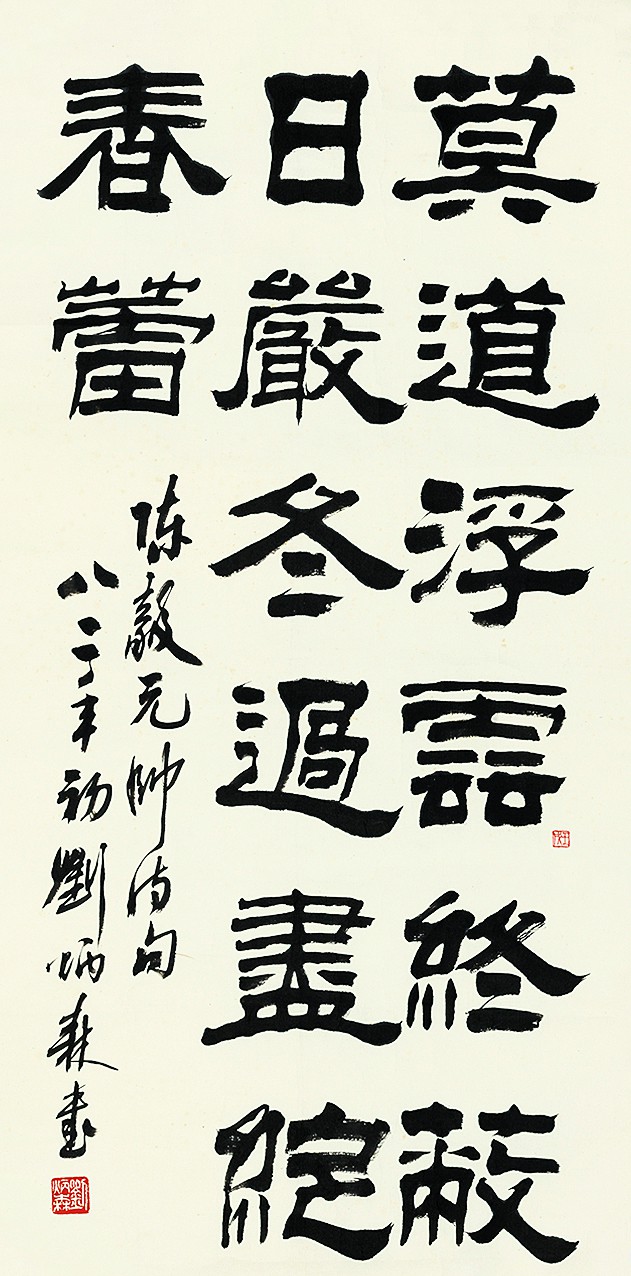 莫道浮雲終蔽
日嚴冬過盡綻
春蕾
陈毅元帥诗句
八二年初劉炳森書
劉炳森